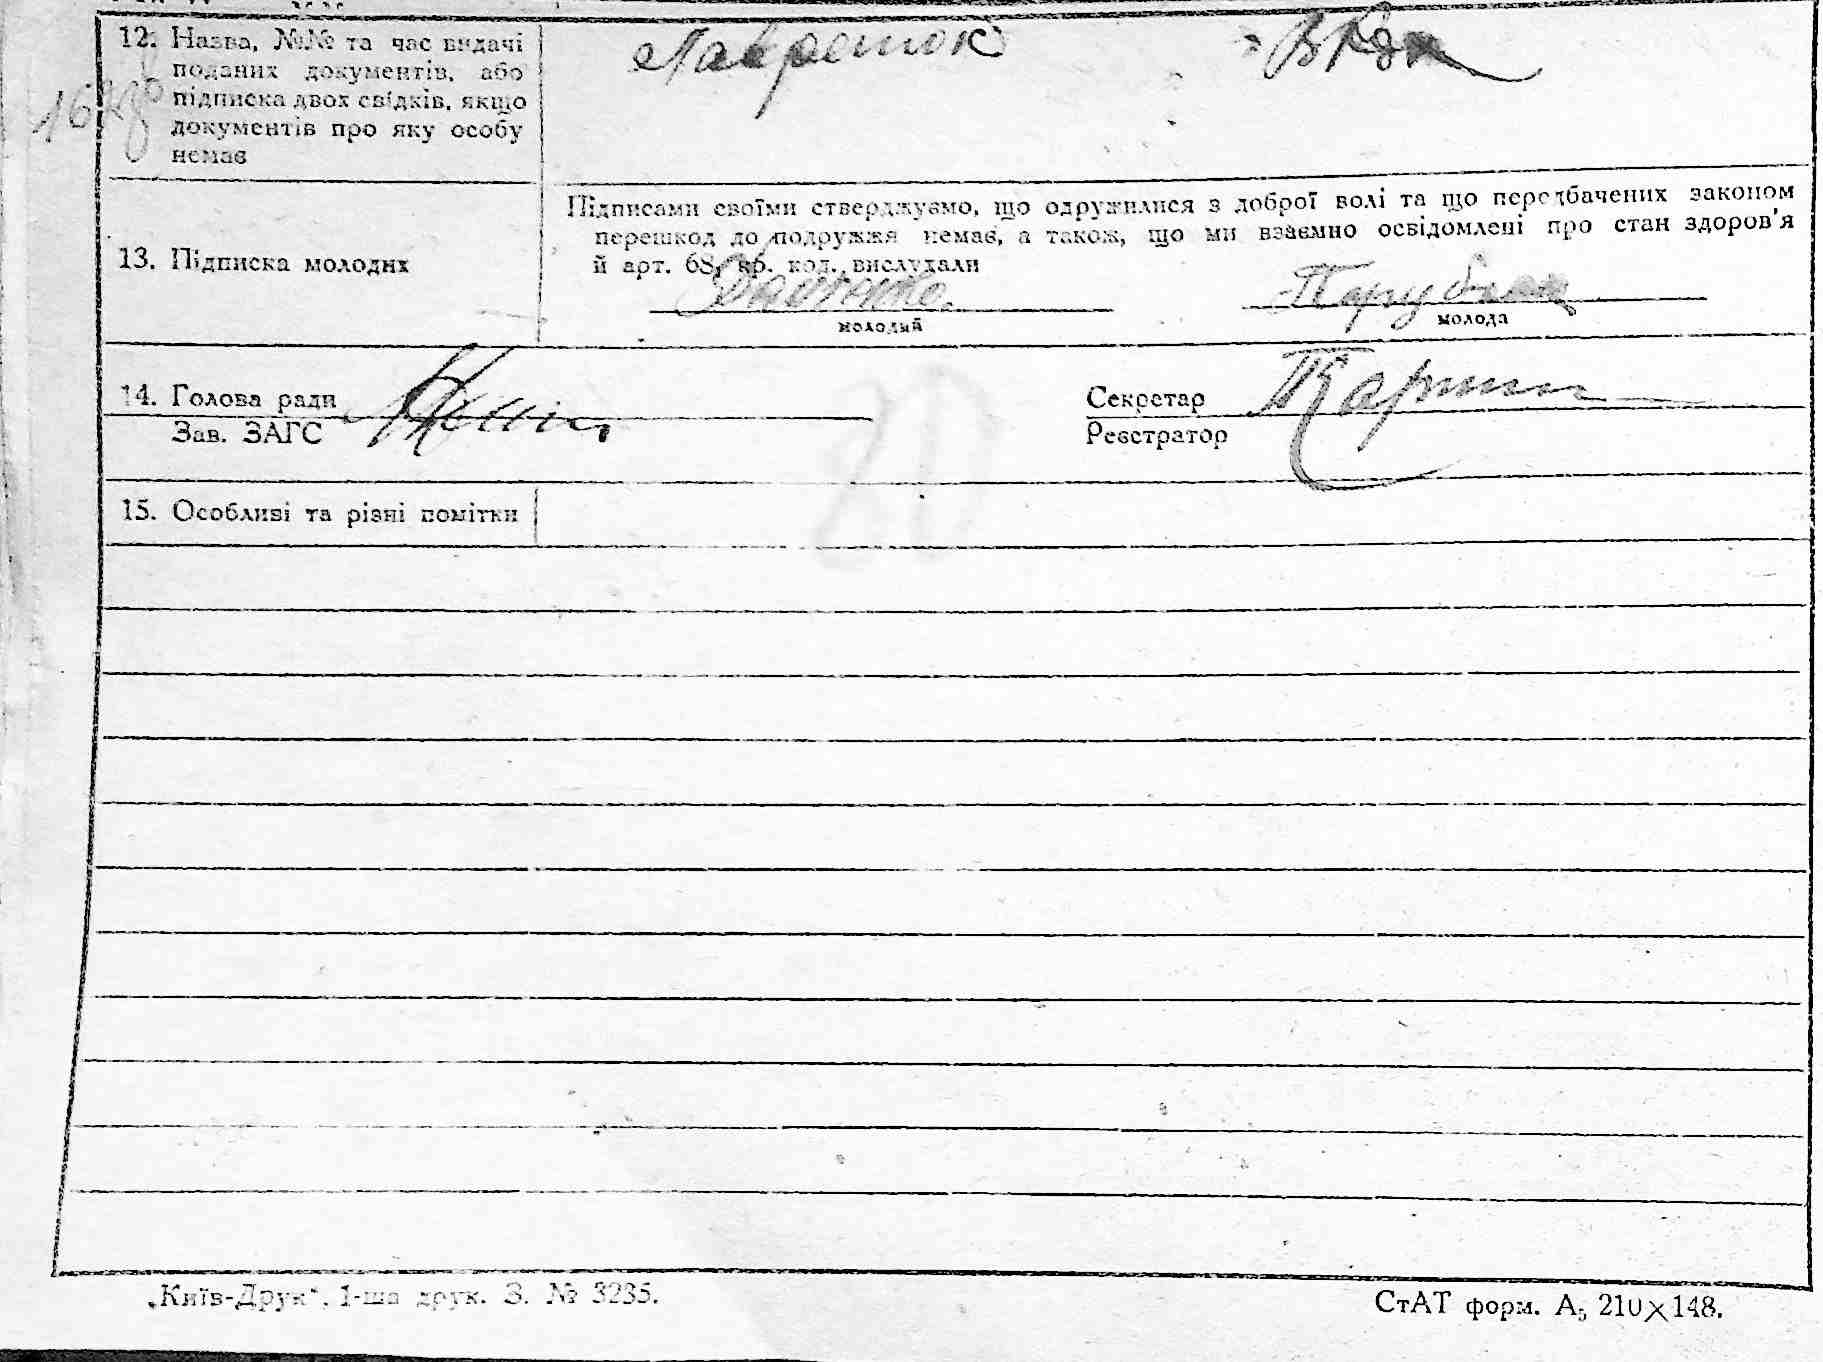 12. Назва, №№ та час видачі
поданих документів, або
підписка двох свідків, якщо
документів про яку особу
немає
13. Підписка молодих
Підписами своїми стверджуємо, що одружилися з доброї волі та що передбачених законом
перешкод до подружжя немає, а також, що ми взаємно освідомлені про стан здоров'я
й арт. 68, кр. код. вислухали
Парубчак
молодий
молода
14. Голова ради
Секретар
Зав. ЗАГС
Реєстратор
15. Особливі та різні помітки
„Київ-Друк“, 1-ша друк. З. № 3235.
СтАТ форм. А5 210×148.